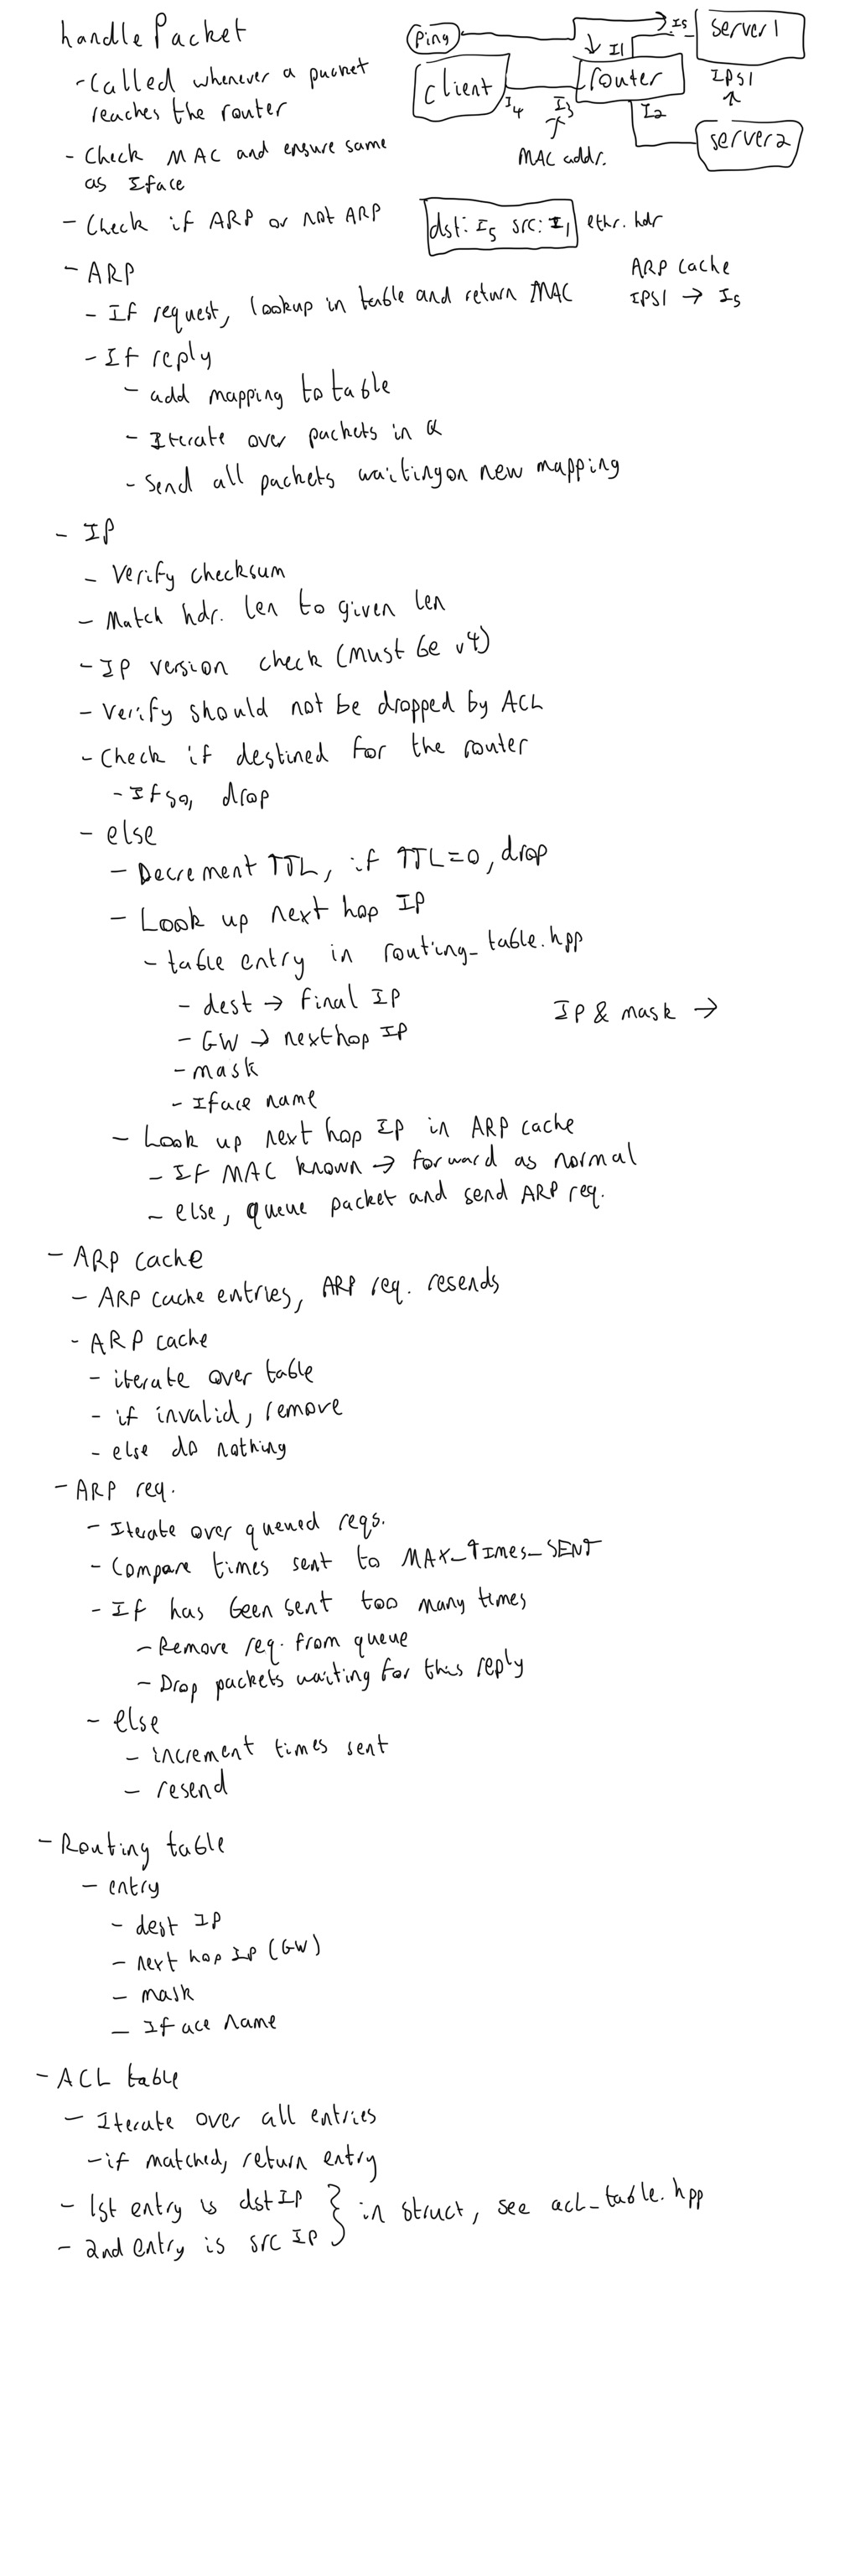 handlePacket
- Called whenever a packet
reaches the router
- Check MAC and ensure same
as Iface
- Check if ARP or not ARP
Ping
client
I4
I3
MAC addr.
router
I1
I2
I5
server1
IPS1
server2
dst: I5 src: I1 ethr. hdr
ARP cache
IPS1 → I5
- ARP
- If request, lookup in table and return MAC
- If reply
- add mapping to table
- Iterate over packets in Q
- Send all packets waiting on new mapping
- IP
- Verify checksum
- Match hdr. len to given len
- IP version check (must be v4)
- Verify should not be dropped by ACL
- Check if destined for the router
- If so, drop
- else
- Decrement TTL, if TTL=0, drop
- Look up next hop IP
- table entry in routing_table.hpp
- dest → final IP
- GW → nexthop IP
- mask
- Iface name
IP & mask →
- Look up next hop IP in ARP cache
- If MAC known → forward as normal
- else, queue packet and send ARP req.
- ARP cache
- ARP cache entries, ARP req. resends
- ARP cache
- iterate over table
- if invalid, remove
- else do nothing
- ARP req.
- Iterate over queued reqs.
- Compare times sent to MAX_TIMES_SENT
- If has been sent too many times
- Remove req. from queue
- Drop packets waiting for this reply
- else
- increment times sent
- resend
- Routing table
- entry
- dest IP
- next hop IP (GW)
- mask
- Iface name
- ACL table
- Iterate over all entries
- if matched, return entry
- 1st entry is dst IP
- 2nd entry is src IP
} in struct, see acl_table.hpp